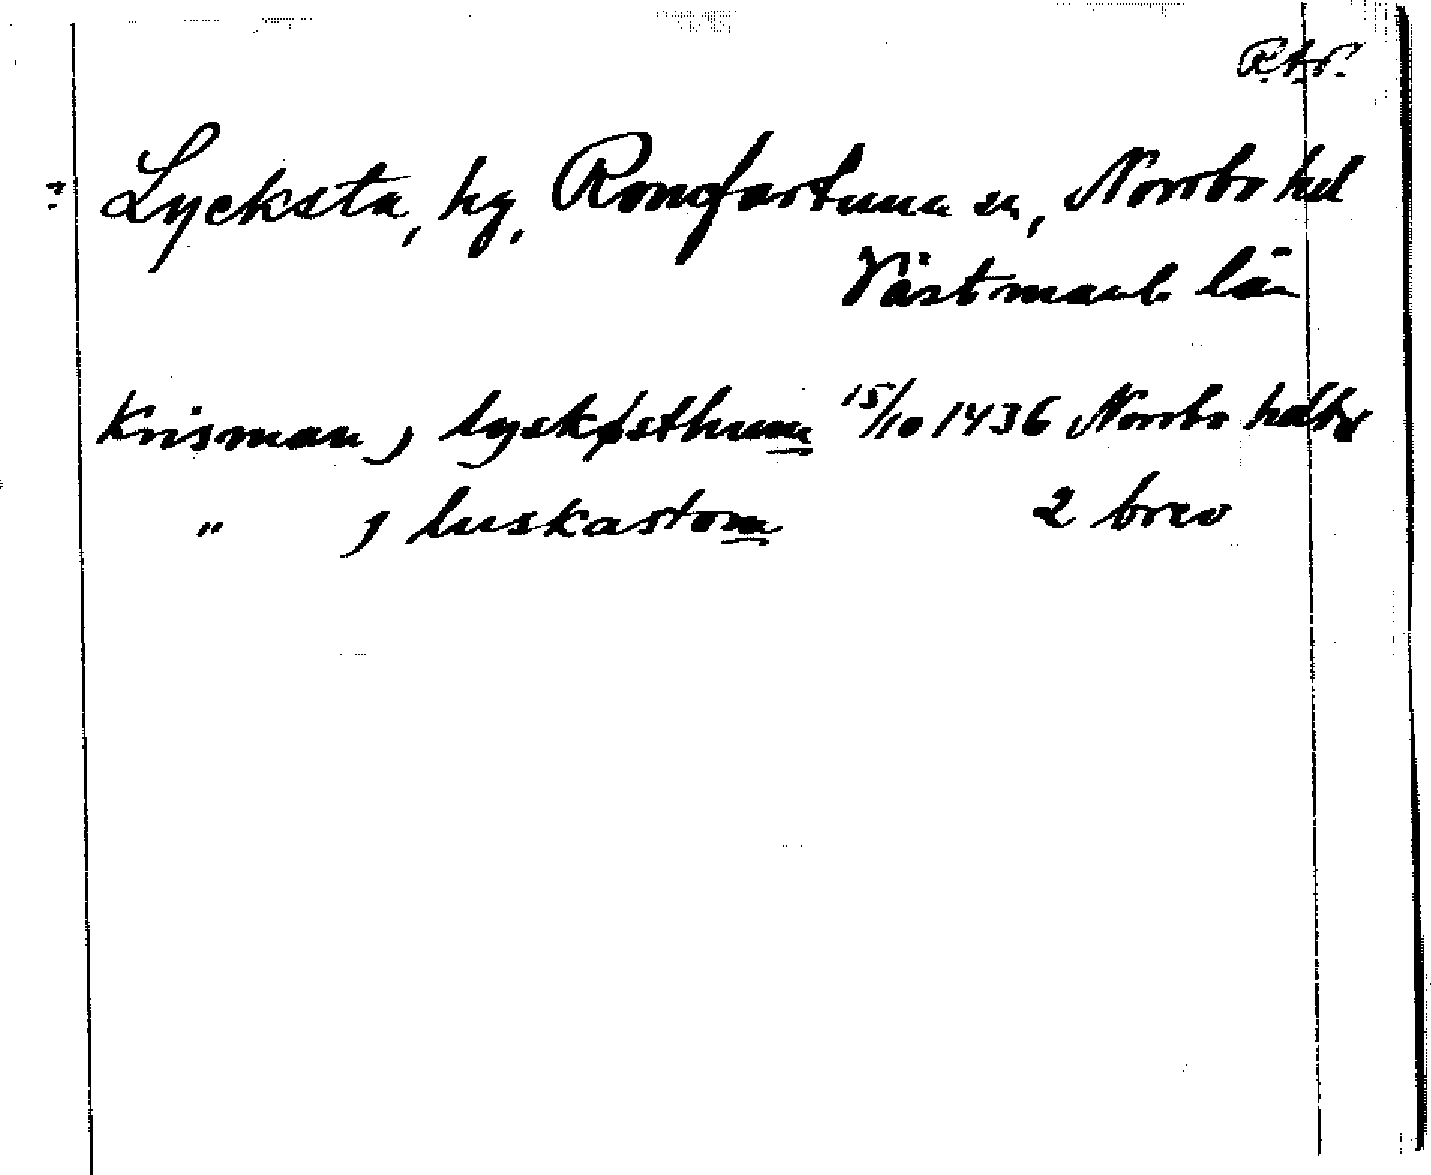 R.A.P.
Lycksta, by, Romfartuna sn, Norrbo hd
Västmanl. län
Krisman, j lyskøsthum 15/10 1436 Norrbo hdtg
" j luskastom 2 brev